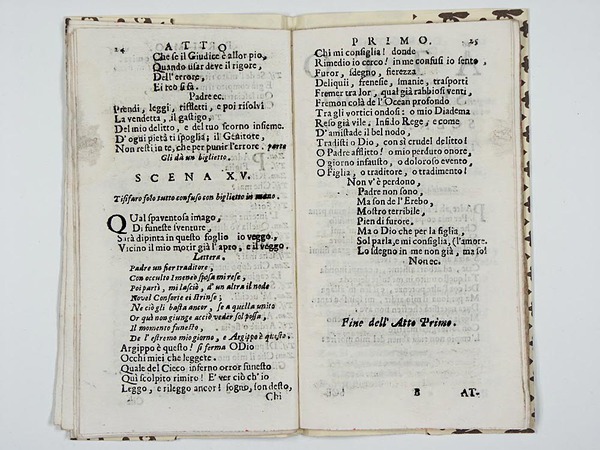 24
ATTO
Che se il Giudice è allor pio,
Quando usar deve il rigore,
Dell'errore,
Ei reo si fà.
Padre ec.
Prendi, leggi, rifletti, e poi risolvi
La vendetta, il gastigo,
Del mio delitto, e del tuo scorno insieme.
D'ogni pietà ti spoglia; il Genitore,
Non resti in te, che per punir l'errore. parte
Gli dà un biglietto.
SCENA XV.
Tisifaro solo tutto confuso con biglietto in mano.
Qual spaventosa imago,
Di funeste sventure,
Sarà dipinta in questo foglio io veggo,
Vicino il mio motir già l'apro, e il veggo.
Lettera.
Padre un fier traditore,
Con occulto Imeneo sposa mi rese,
Poi partì, mi lasciò, d'un altra il nodo
Novel Consorte ei strinse;
Ne ciò gli basta ancor, se a quella unito
Or quà non giunge acciò veder sol possa,
Il momento funesto,
De l'estremo mio giorno, e Argippo è questo.
Argippo è questo! si ferma O Dio
Occhi miei che leggete.
Quale del Cieco inferno orror funesto
Quì scolpito rimiro! E' ver ciò ch'io
Leggo, e rileggo ancor! sogno, son desto,
Chi
PRIMO.
25
Chi mi consiglia! donde
Rimedio io cerco! in me confusi io sento,
Furor, sdegno, fierezza
Deliquii, frenesie, smanie, trasporti
Fremer tra lor, qual già rabbiosi venti,
Fremon colà de l'Ocean profondo
Tra gli vortici ondosi: o mio Diadema
Reso già vile. Infido Rege, e come
D'amistade il bel nodo,
Tradisti o Dio, con sì crudel delitto!
O Padre afflitto! o mio perduto onore,
O giorno infausto, o doloroso evento,
O Figlia, o traditore, o tradimento!
Non v'è perdono,
Padre non sono,
Ma son de l'Erebo,
Mostro terribile,
Pien di furore.
Ma o Dio che per la figlia,
Sol parla, e mi consiglia, (l'amore.
Lo sdegno in me non già, ma sol
Non ec.
Fine dell'Atto Primo.
B
AT-